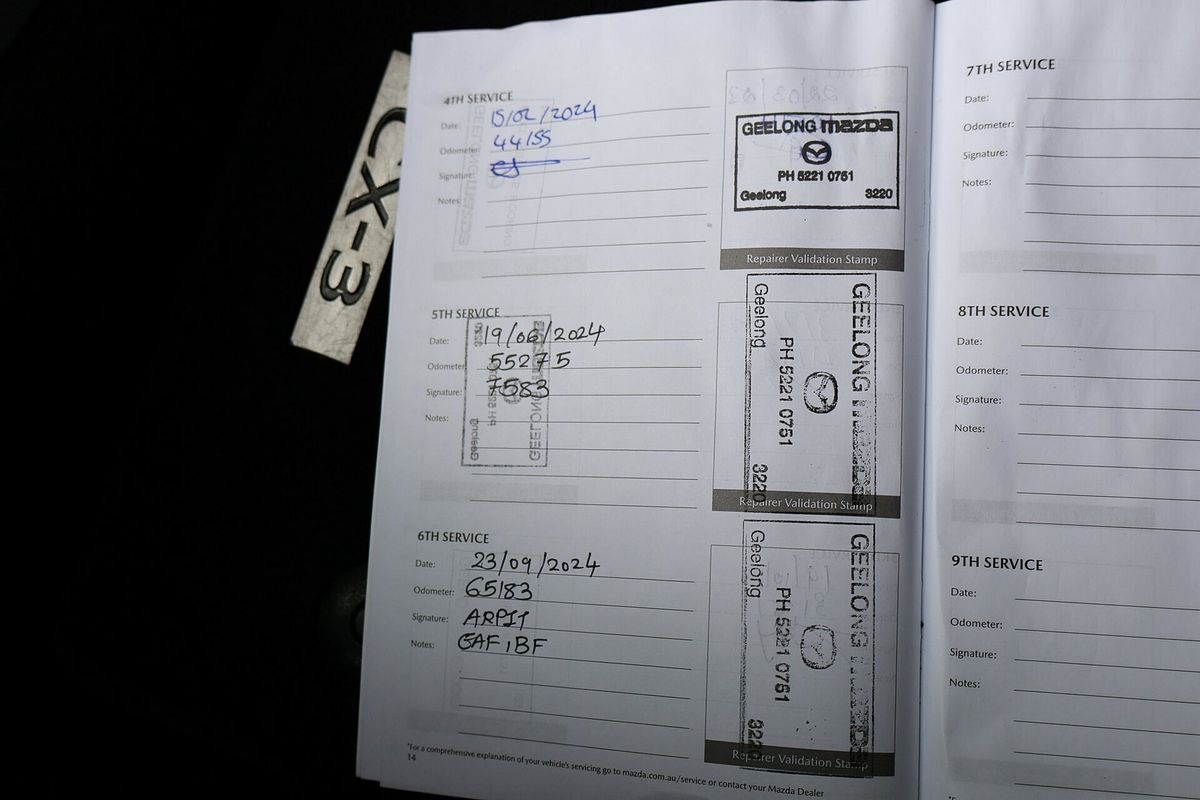 CX-3
4TH SERVICE
Date: 15/02/2024
Odometer: 44155
Signature:
Notes:
GEELONG mazda
PH 5221 0751
Geelong 3220
Repairer Validation Stamp
5TH SERVICE
Date: 19/06/2024
Odometer: 55275
Signature: 7583
Notes:
GEELONG mazda
PH 5221 0751
Geelong 3220
Repairer Validation Stamp
6TH SERVICE
Date: 23/09/2024
Odometer: 65183
Signature: ARPIT
Notes: GAF, BF
GEELONG mazda
PH 5221 0751
Geelong 3220
Repairer Validation Stamp
*For a comprehensive explanation of your vehicle's servicing go to mazda.com.au/service or contact your Mazda Dealer
14
7TH SERVICE
Date:
Odometer:
Signature:
Notes:
8TH SERVICE
Date:
Odometer:
Signature:
Notes:
9TH SERVICE
Date:
Odometer:
Signature:
Notes: